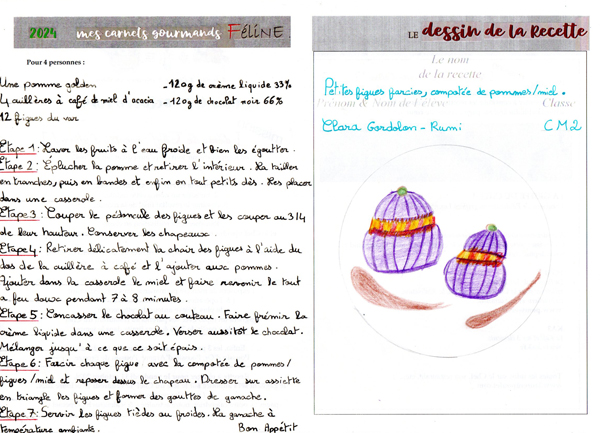 2024 mes carnets gourmands FÉLINE
Pour 4 personnes :
Une pomme golden - 120g de crème liquide 33%
4 cuillères à café de miel d'acacia - 120g de chocolat noir 66%
12 figues du var
Etape 1 : Laver les fruits à l'eau froide et bien les égoutter.
Etape 2 : Éplucher la pomme et retirer l'intérieur. La tailler
en tranches, puis en bandes et enfin en tout petits dés. Les placer
dans une casserole.
Etape 3 : Couper le pédoncule des figues et les couper au 3/4
de leur hauteur. Conserver les chapeaux.
Etape 4 : Retirer délicatement la chair des figues à l'aide du
dos de la cuillère à café et l'ajouter aux pommes.
Ajouter dans la casserole le miel et faire revenir le tout
a feu doux pendant 7 à 8 minutes.
Etape 5 : Concasser le chocolat au couteau. Faire frémir la
crème liquide dans une casserole. Verser aussitôt le chocolat.
Mélanger jusqu'à ce que ce soit épais.
Etape 6 : Farcir chaque figue avec la compotée de pommes/
figues/miel et reposer dessus le chapeau. Dresser sur assiette
en triangle les figues et former des gouttes de ganache.
Etape 7 : Servir les figues tièdes au froides. La ganache à
température ambiante. Bon Appétit
LE dessin de la Recette
Le nom
de la recette
Petites figues farcies, compotée de pommes/miel.
Prénom & Nom de l'élève Classe
Clara Gordolon - Rumi CM2